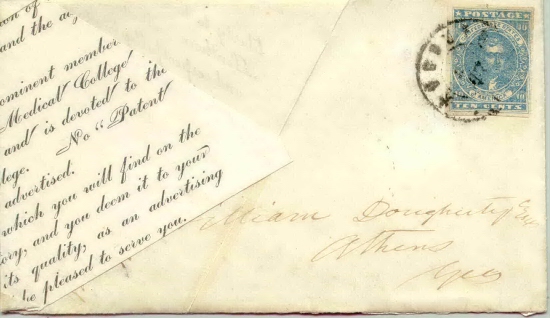 on of
and the ag
ominent member
Medical College
and is devoted to the
lege. No "Patent
advertised.
which you will find on the
ory, and you deem it to your
its quality, as an advertising
be pleased to serve you.
POSTAGE
TEN CENTS
William Dougherty Esq
Athens
Geo